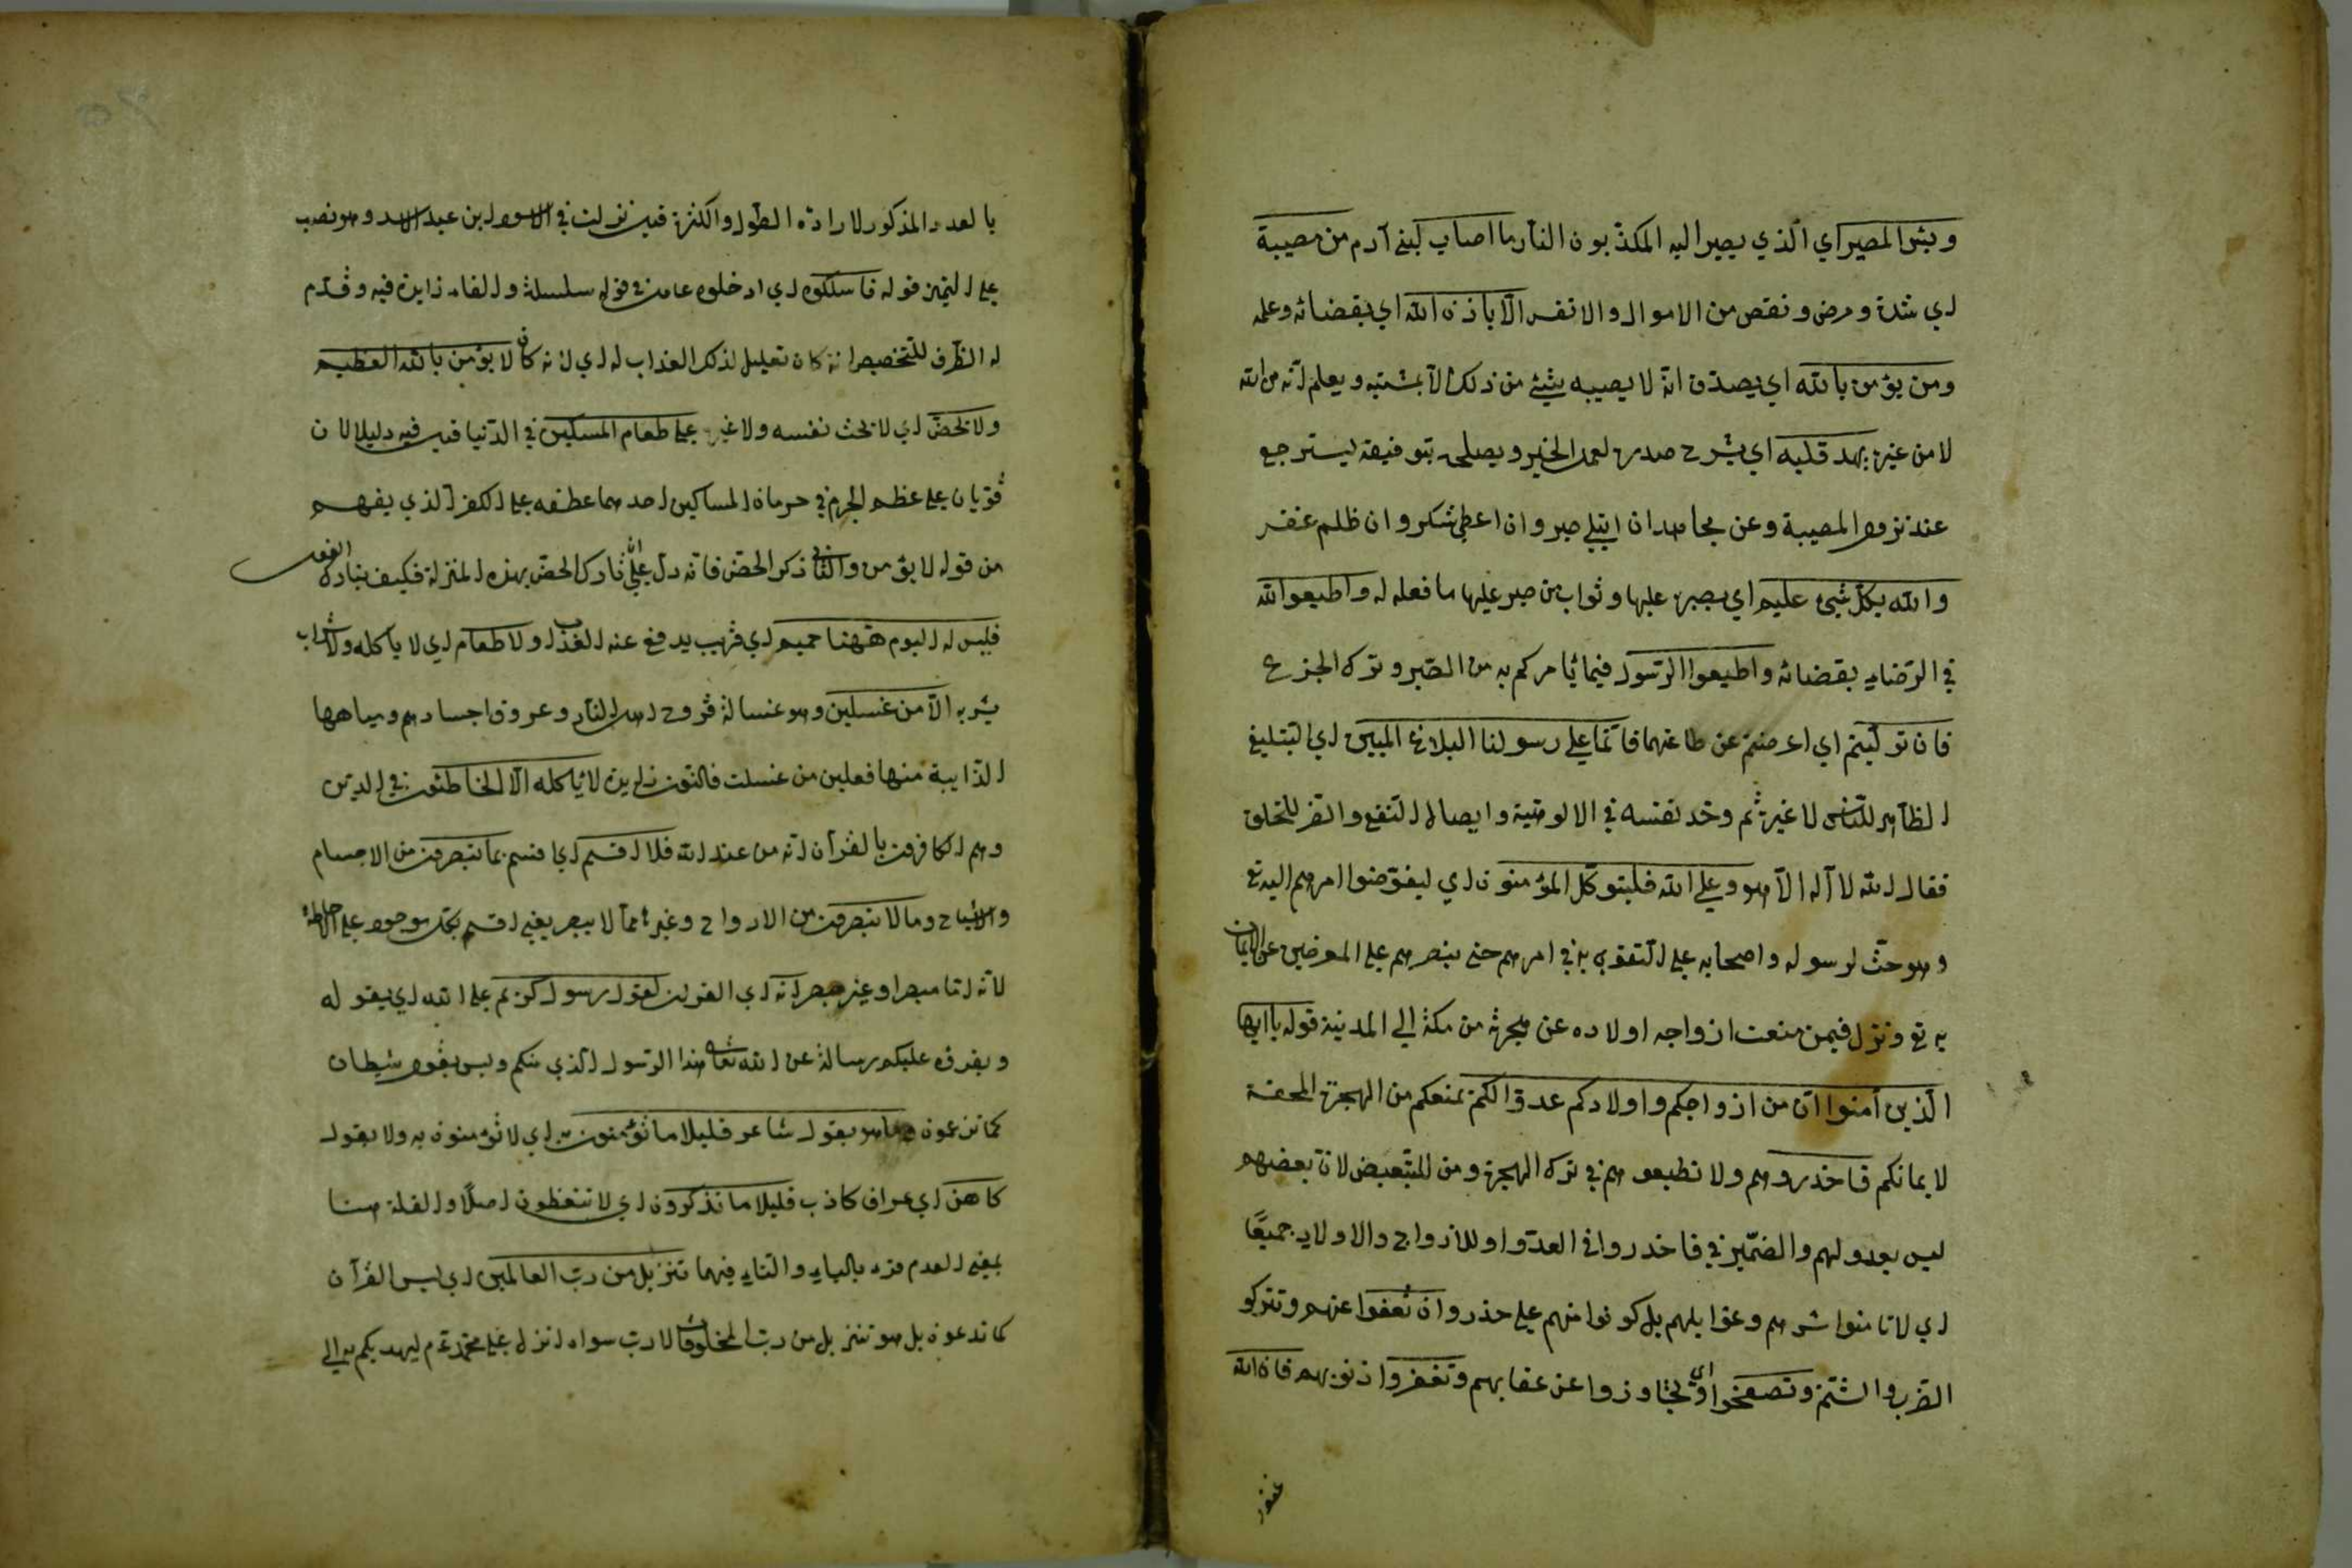 وبئس المصير اي الذي يصير اليه المكذبون النار ما اصاب لبني آدم من مصيبة
اي شدة ومرض ونقص من الاموال والانفس الا باذن الله اي بقضائه وعلمه
ومن يؤمن بالله اي يصدق انه لا يصيبه شيئ من ذلك الا بمشيته ويعلم انه من الله
لا من غيره يهد قلبه اي يشرح صدره لعمل الخير ويصلحه بتوفيقه ليسترجع
عند نزول المصيبة وعن مجاهد ان ابتلي صبر وان اعطي شكر وان ظلم غفر
والله بكل شيئ عليم اي بصبره عليها وثواب من صبر عليها ما فعله له واطيعوا الله
في الرضاء بقضائه واطيعوا الرسول فيما يامركم به من الصبر وترك الجزع
فان توليتم اي اعرضتم عن طاعتهما فانما على رسولنا البلاغ المبين اي التبليغ
الظاهر للناس لا غيره ثم وحد نفسه في الالوهية وايصال النفع والضر للخلق
فقال الله لا آله الا هو وعلى الله فليتوكل المؤمنون اي ليفوضوا امرهم اليه تع
وهو حث لرسوله واصحابه على التقوى به في امرهم حتى ينصرهم على المعرضين عن الايمان
به تع ونزل فيمن منعت ازواجه اولاده عن هجرته من مكة الى المدينة قوله يا ايها
الذين آمنوا ان من ازواجكم واولادكم عدوا لكم بمنعكم من الهجرة
لايمانكم فاحذروهم ولا تطيعوهم في ترك الهجرة ومن للتبعيض لان بعضهم
ليس بعدو لهم والضمير في فاحذروا في العدو او للازواج والاولاد جميعا
اي لا تامنوا شرهم وغوايلهم بل كونوا منهم على حذر وان تعفوا عنهم وتتركوا
الضرب والشتم وتصفحوا اي تجاوزوا عن عقابهم وتغفروا ذنوبهم فان الله
غفور
بالعدد المذكور لارادة الطول والكثرة قيل نزلت في الاسود بن عبد الاسد وهو نصب
على التميز قوله فاسلكوه اي ادخلوه عامل في قوله سلسلة والفاء زايدة فيه وقدم
له الظرف للتخصيص انه كان تعليل لذلك العذاب له اي لانه كان لا يؤمن بالله العظيم
ولا يحض اي لا يحث نفسه ولا غيره على طعام المسكين في الدنيا قيل فيه دليلا لان
قويان على عظم الجرم في حرمان المساكين احدهما عطفه على الكفر الذي يفهم
من قوله لا يؤمن والثاني ذكر الحض فانه دل على ان تارك الحض بهذه المنزلة فكيف بتارك الفعل
فليس له اليوم ههنا حميم اي قريب يدفع عنه العذاب ولا طعام اي لا ياكله ولا شراب
يشربه الا من غسلين وهو غسالة قروح اهل النار وعروق اجسادهم ومياهها
الذايبة منها فعلين من غسلت فالنون زايدة لا ياكله الا الخاطئون في الدين
وهم الكافرون بالقرآن انه من عند الله فلا اقسم اي قسم بما تبصرون من الاجسام
والاشباح وما لا تبصرون من الارواح وغيرها مما لا يبصر يعني اقسم بكل موجود على احاطة
لانه اما مبصر او غير مبصر انه اي القرآن لقول رسول كريم على الله اي يقوله
ويقرؤه عليكم رسالة عن الله تعالى هذا الرسول الذي منكم وليس بقول شيطان
كما تزعمون وما هو بقول شاعر قليلا ما تؤمنون به اي لا تؤمنون به ولا بقول
كاهن اي عراف كاذب قليلا ما تذكرون اي لا تتعظون اصلا والقلة هنا
بمعنى العدم قرء بالياء والتاء فيهما تنزيل من رب العالمين اي ليس القرآن
كما تدعون بل هو تنزيل من رب المخلوقات لا رب سواه انزل على محمد عم ليهديكم به الى